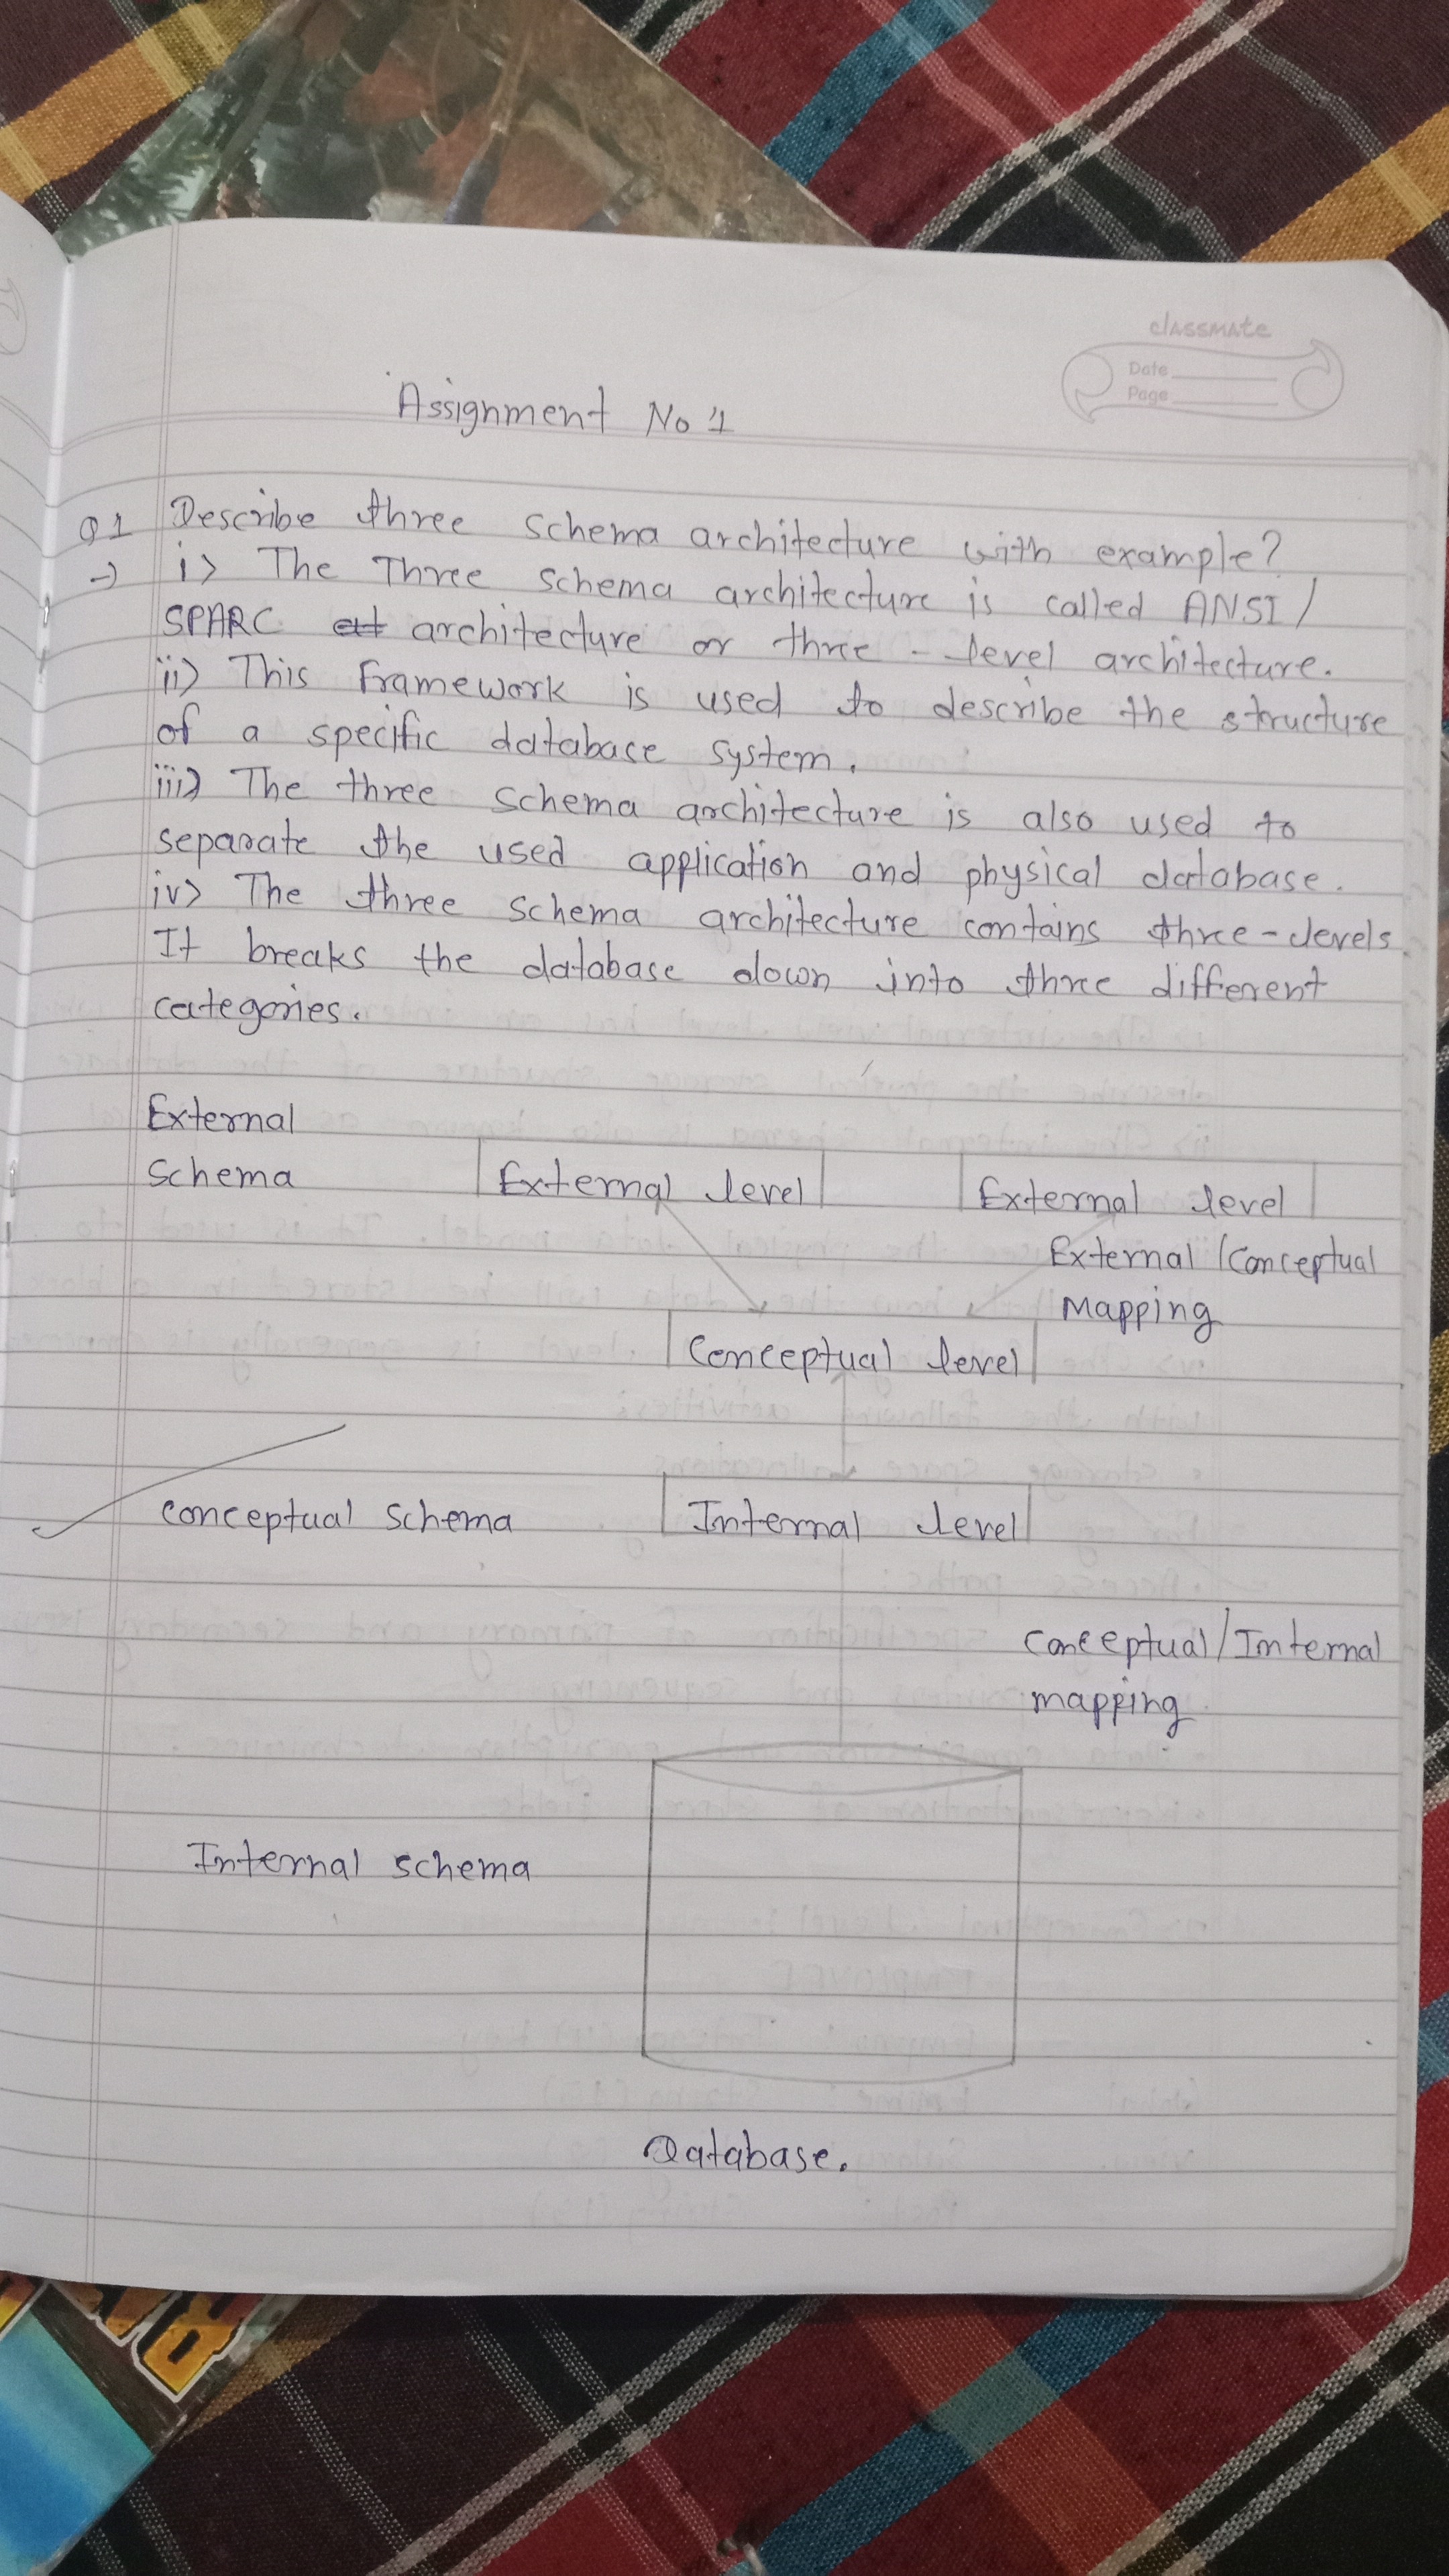 classmate
Date
Page
Assignment No 1
Q1 Describe three schema architecture with example?
→ i> The Three schema architecture is called ANSI/
SPARC architecture or three-level architecture.
ii> This framework is used to describe the structure
of a specific database system.
iii> The three schema architecture is also used to
separate the used application and physical database.
iv> The three schema architecture contains three-levels
It breaks the database down into three different
categories.
External
Schema
External level
External level
External/Conceptual
Mapping
Conceptual level
Conceptual schema
Internal level
Conceptual/Internal
mapping
Internal schema
Database.